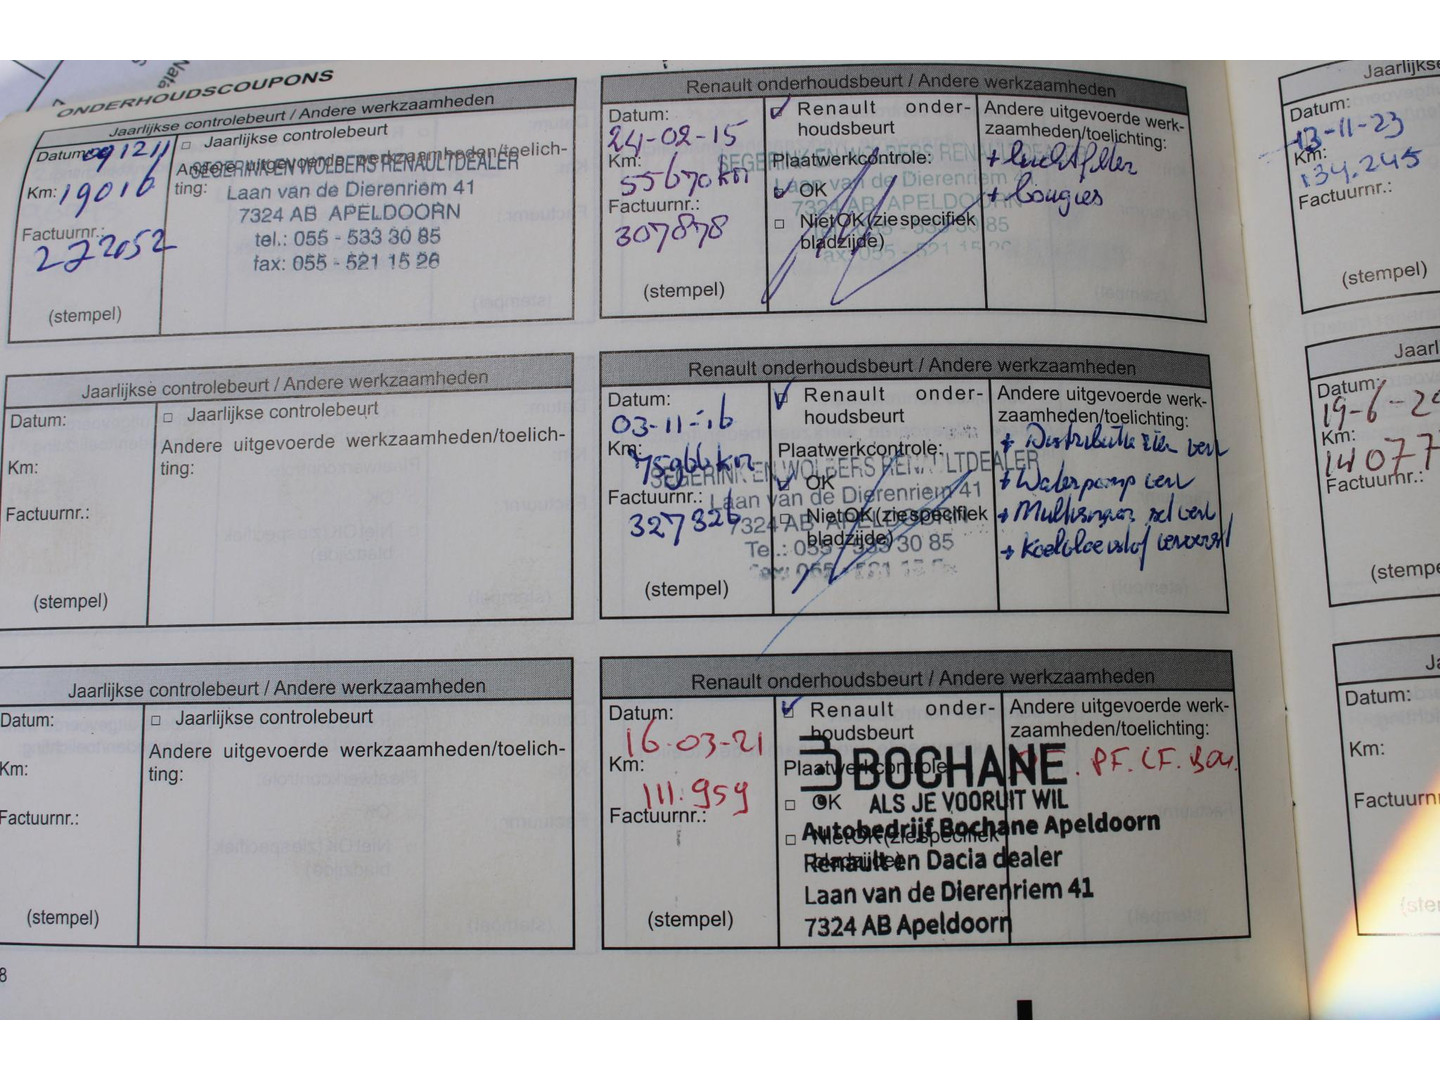 ONDERHOUDSCOUPONS
Jaarlijkse controlebeurt / Andere werkzaamheden
Datum: 091211
Km: 19016
Factuurnr.:
222052
(stempel)
□ Jaarlijkse controlebeurt
Andere uitgevoerde werkzaamheden/toelich-
ting:
SEGERINK EN WOLBERS RENAULTDEALER
Laan van de Dierenriem 41
7324 AB APELDOORN
tel.: 055 - 533 30 85
fax: 055 - 521 15 26
Renault onderhoudsbeurt / Andere werkzaamheden
Datum:
24-02-15
Km:
55670 km
Factuurnr.:
307878
(stempel)
Renault onder-
houdsbeurt
Plaatwerkcontrole:
OK
□ NietOK(zie specifiek
bladzijde)
SEGERINK EN WOLBERS RENAULTDEALER
Laan van de Dierenriem 41
7324 AB APELDOORN
Andere uitgevoerde werk-
zaamheden/toelichting:
+ luchtfilter
+ bougies
Jaarlijkse controlebeurt / Andere werkzaamheden
Datum:
Km:
Factuurnr.:
(stempel)
□ Jaarlijkse controlebeurt
Andere uitgevoerde werkzaamheden/toelich-
ting:
Renault onderhoudsbeurt / Andere werkzaamheden
Datum:
03-11-16
Km:
75966 km
Factuurnr.:
327326
(stempel)
Renault onder-
houdsbeurt
Plaatwerkcontrole:
OK
NietOK(zie specifiek
bladzijde)
SEGERINK EN WOLBERS RENAULTDEALER
Laan van de Dierenriem 41
7324 AB APELDOORN
Tel.: 055 - 533 30 85
Andere uitgevoerde werk-
zaamheden/toelichting:
+ Distributie riem verv
+ Waterpomp verv
+ verv
+ Koelvloeistof ververst
Jaarlijkse controlebeurt / Andere werkzaamheden
Datum:
Km:
Factuurnr.:
(stempel)
□ Jaarlijkse controlebeurt
Andere uitgevoerde werkzaamheden/toelich-
ting:
Renault onderhoudsbeurt / Andere werkzaamheden
Datum:
16-03-21
Km:
111.959
Factuurnr.:
(stempel)
Renault onder-
houdsbeurt
Plaatwerkcontrole:
□ OK
□ NietOK(zie specifiek
bladzijde)
BOCHANE
ALS JE VOORUIT WIL
Autobedrijf Bochane Apeldoorn
Renault en Dacia dealer
Laan van de Dierenriem 41
7324 AB Apeldoorn
Andere uitgevoerde werk-
zaamheden/toelichting:
PF. LF. Bou.
8
Jaarlijks
Datum:
13-11-23
Km:
134.245
Factuurnr.:
(stempel)
Jaarl
Datum:
19-6-2
Km:
14077
Factuurnr.:
(stempe
Datum:
Km:
Factuurn
(ste